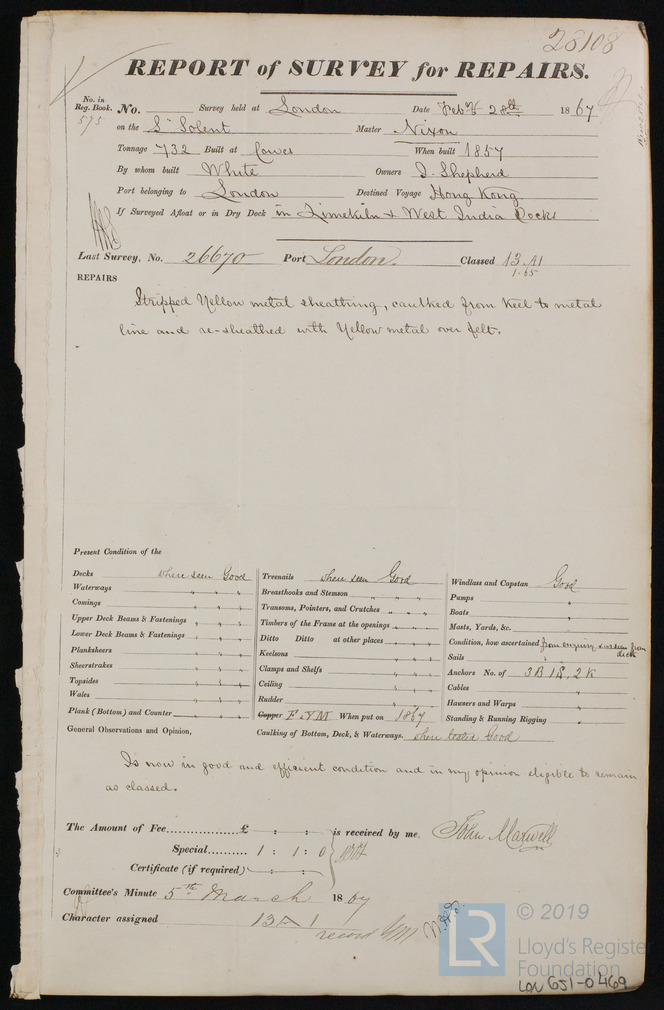 28108
REPORT of SURVEY for REPAIRS.
No. in Reg. Book.
575
No. Survey held at London Date Feby 28th 1867
on the Sr Solent Master Nixon
Tonnage 732 Built at Cowes When built 1857
By whom built White Owners J. Shepherd
Port belonging to London Destined Voyage Hong Kong
If Surveyed Afloat or in Dry Dock in Limekiln & West India Docks
Last Survey, No. 26670 Port London. Classed 13 A1
1.65
REPAIRS
Stripped Yellow metal sheathing, caulked from Keel to metal
line and re-sheathed with Yellow metal over felt.
Present Condition of the
Decks where seen Good
Waterways " " "
Comings " " "
Upper Deck Beams & Fastenings " " "
Lower Deck Beams & Fastenings " " "
Planksheers " " "
Sheerstrakes " " "
Topsides " " "
Wales " " "
Plank (Bottom) and Counter " " "
Treenails where seen Good
Breasthooks and Stemson " " "
Transoms, Pointers, and Crutches " " "
Timbers of the Frame at the openings " " "
Ditto Ditto at other places " " "
Keelsons " " "
Clamps and Shelfs " " "
Ceiling " " "
Rudder " " "
Copper F Y M When put on 1867
Caulking of Bottom, Deck, & Waterways. where tested Good
Windlass and Capstan Good
Pumps "
Boats "
Masts, Yards, &c. "
Condition, how ascertained from enquiry & as seen from deck
Sails "
Anchors No. of 3B 1S, 2K
Cables "
Hawsers and Warps "
Standing & Running Rigging "
General Observations and Opinion,
Is now in good and efficient condition and in my opinion eligible to remain
as classed.
The Amount of Fee £ : : is received by me, John Maxwell
Special 1 : 1 : 0
Certificate (if required) : :
Committee's Minute 5th March 1867
Character assigned 13 A 1
record YM
© 2019
LR
Lloyd's Register
Foundation
LON 651-0469